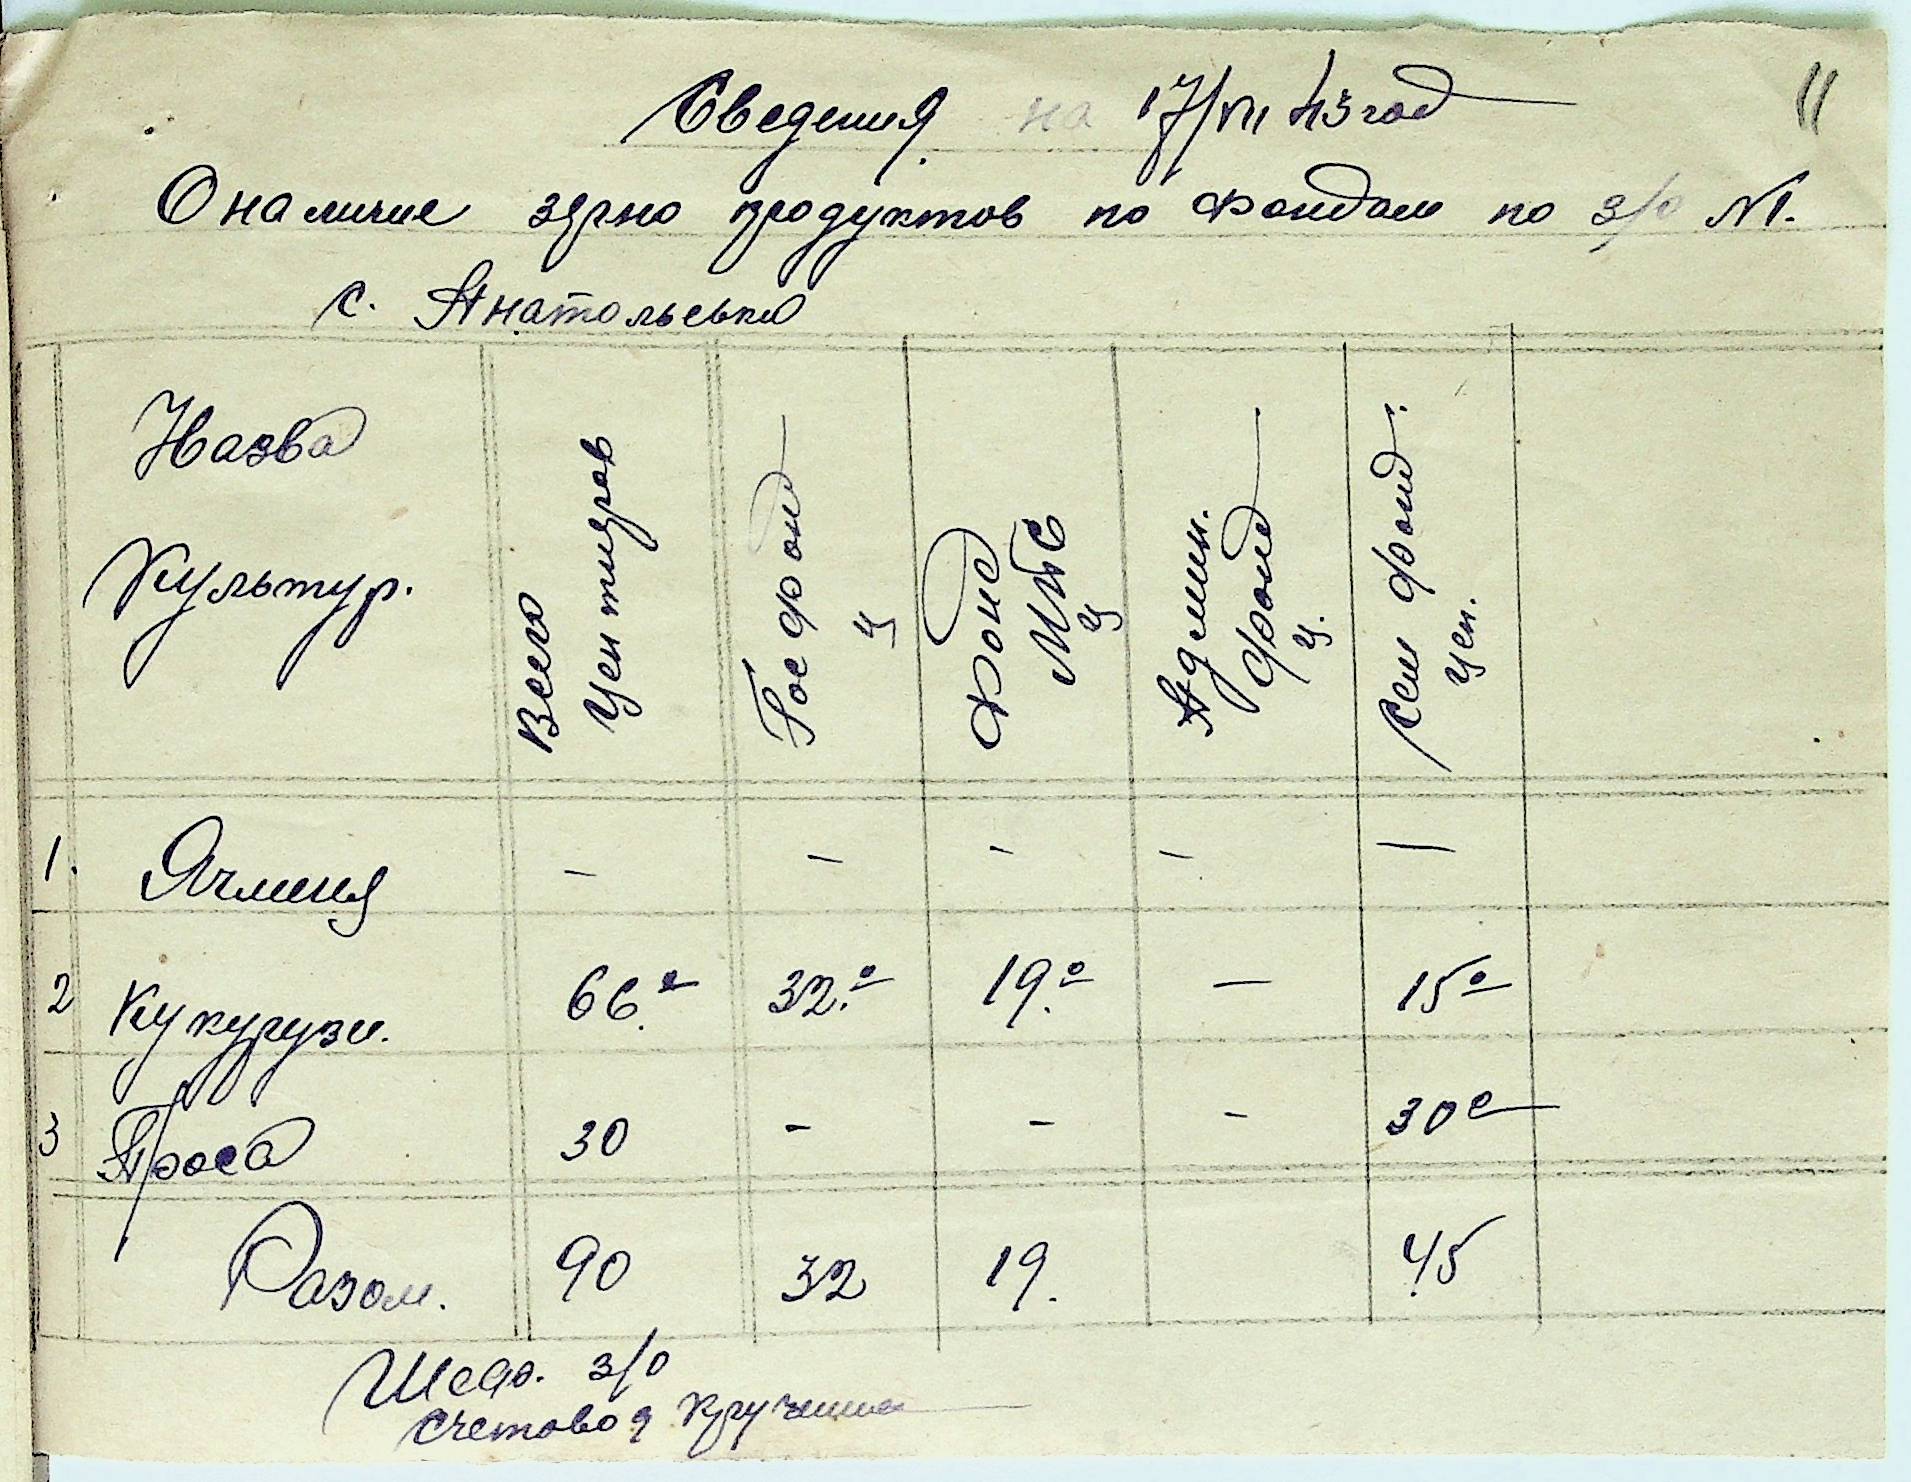 Сведения на 17/VII 43 год
11
О наличие зерно продуктов по фондам по з/о №1.
с. Анатольевка
Назва Культур.
Всего Центнеров
Гос фонд ц
Фонд МТС ц
Админ. фонд ц.
Сем фонд. цен.
1. Ячменя - - - - -
2 Кукурузи. 66.0 32.0 19.0 - 15 0
3 Проса 30 - - - 30 0
Разом. 90 32 19. 45
Шеф. з/о
Счетовод